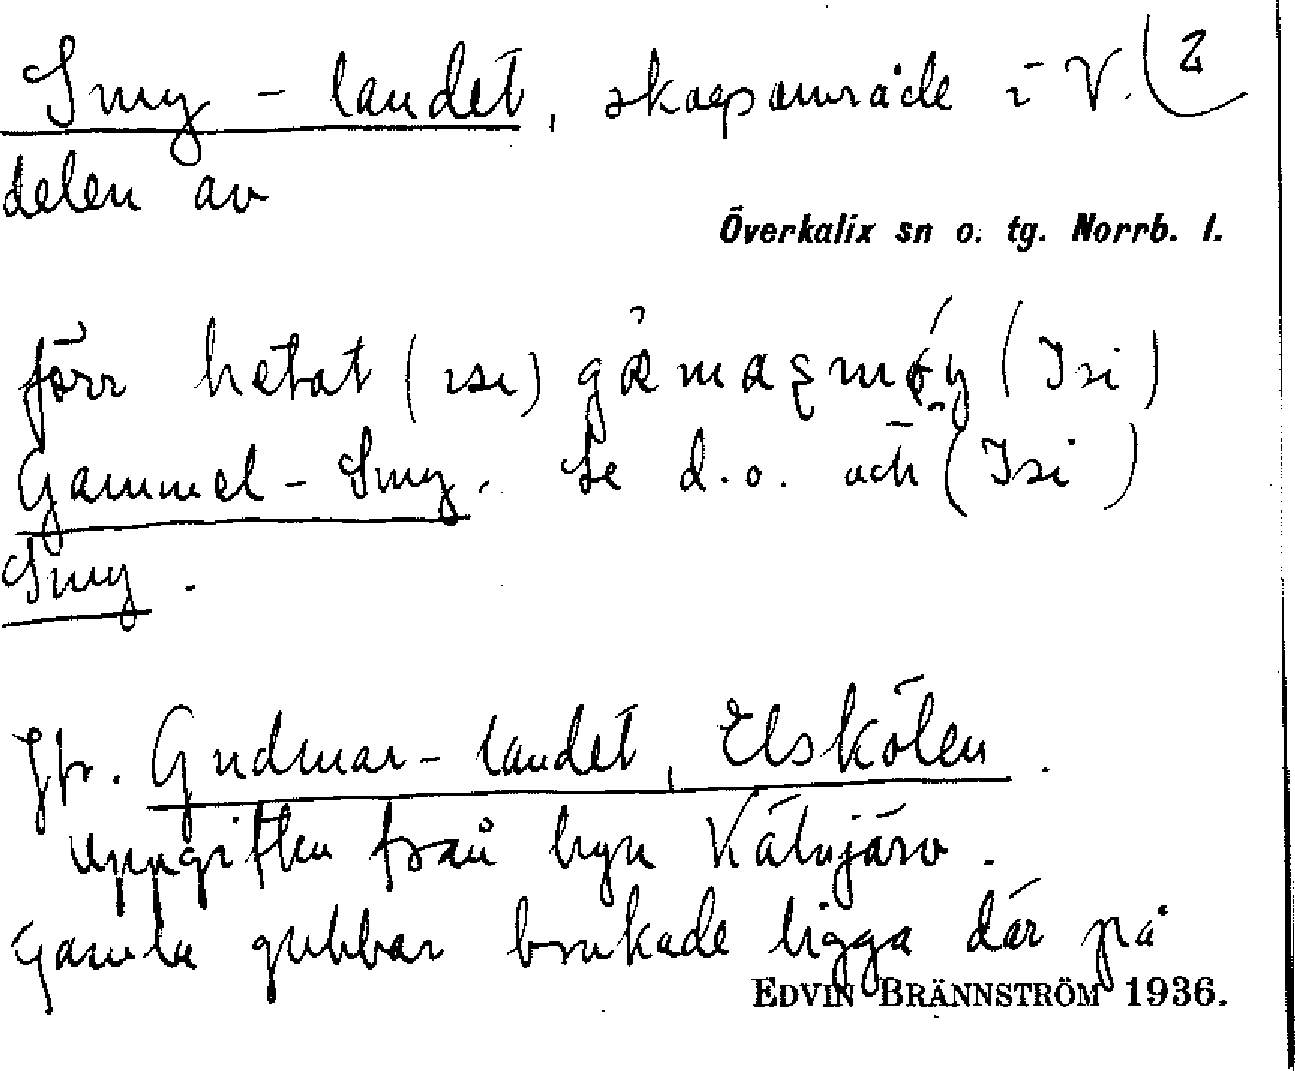 Smy-landet, skogsområde i V. (2
delen av
Överkalix sn o. tg. Norrb. l.
förr hetat (Isi)
Gammel-Smy. Se d.o. och (Isi)
Smy.
Jfr. Gudmar-landet, Elskölen.
Uppgiften från byn Kälvjärv.
Gamla gubbar brukade ligga där på
EDVIN BRÄNNSTRÖM 1936.